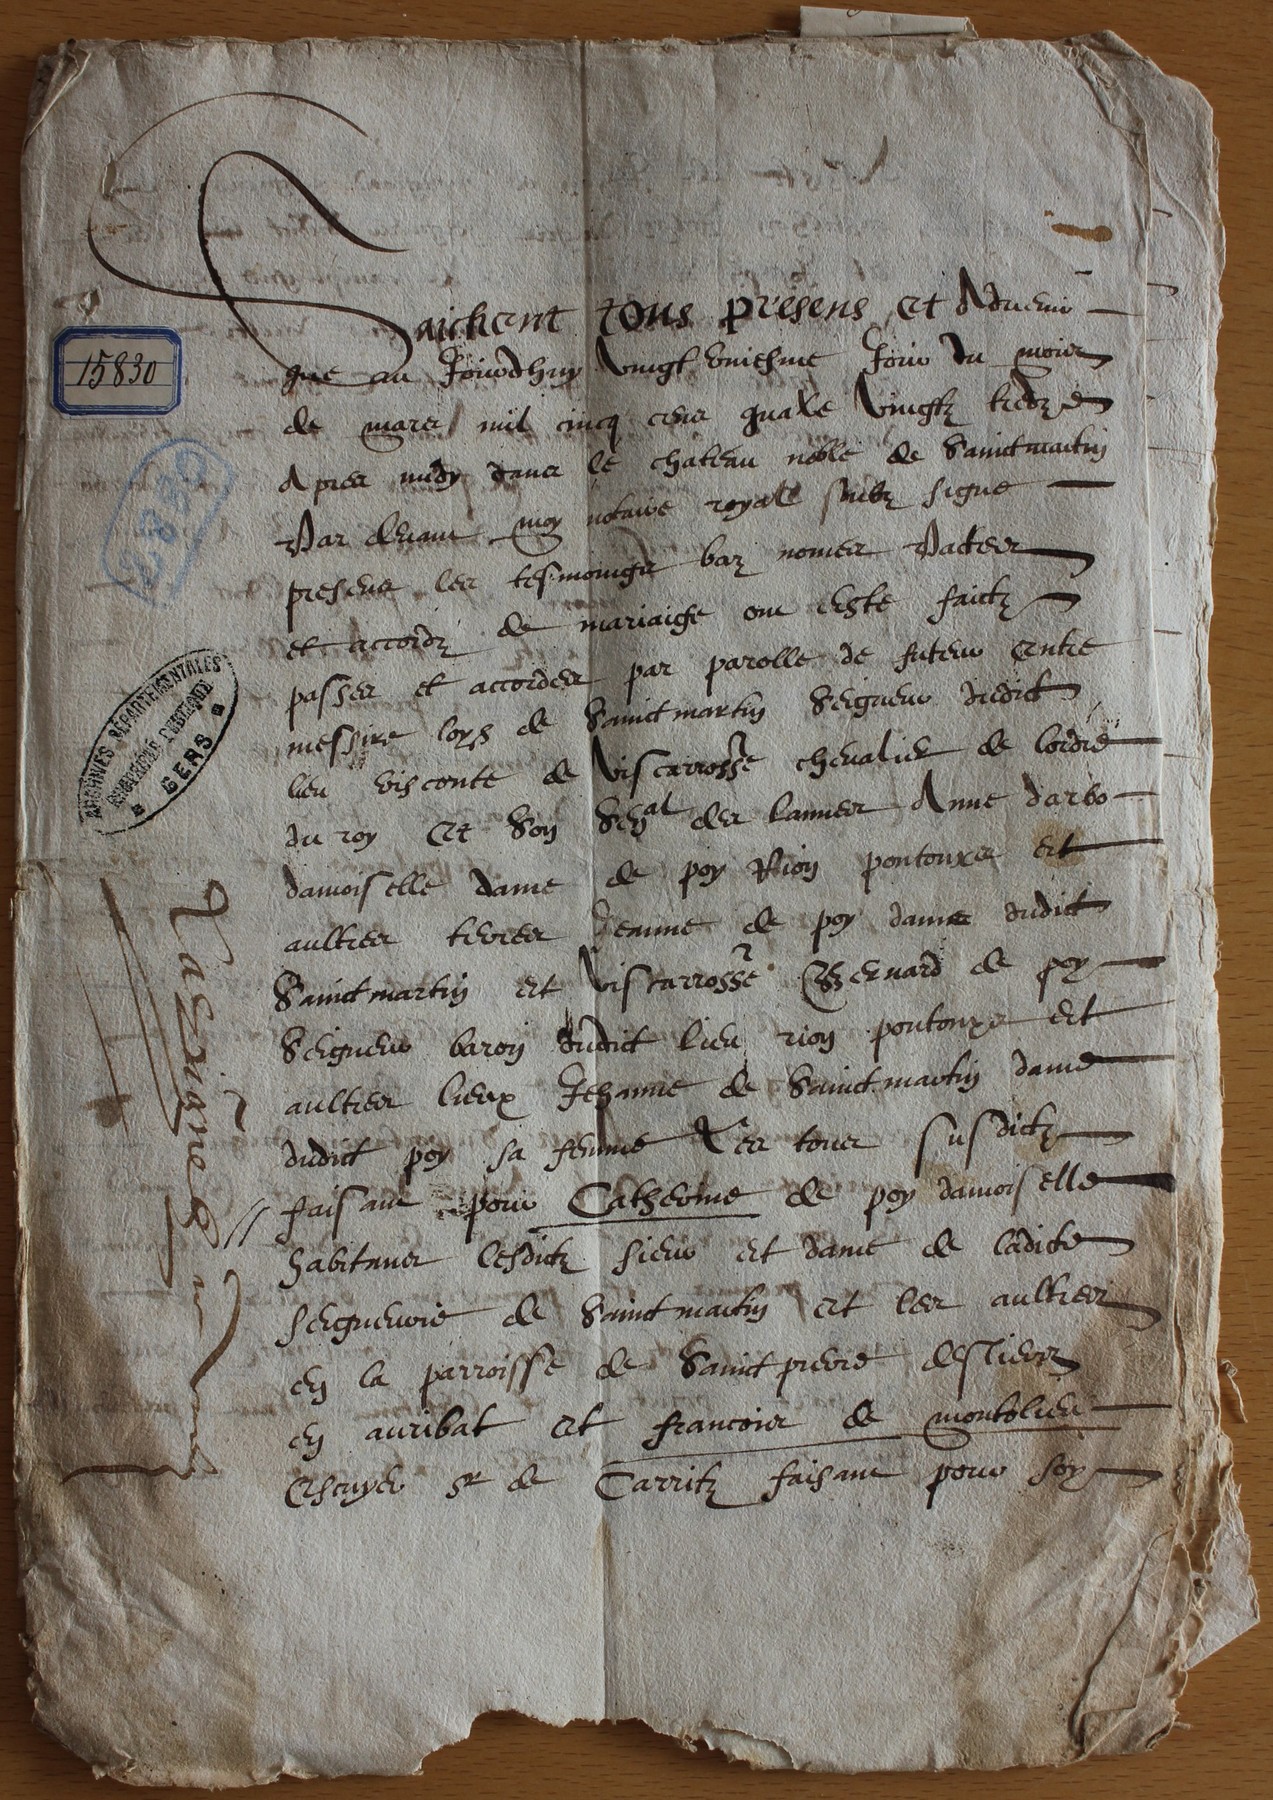 Saichent tous presens et advenir
que au jourdhuy vingt uniesme jour du mois
de mars mil cincq cens quatre vingtz tredze
apres midy dans le chateau noble de Sainctmartin
Par devant moy notaire royal soubz signe
presens les tesmoingz bas nomes Pactes
et accordz de mariaige ont este faictz
passes et accordes par parolle de futeur entre
messire loys de Sainctmartin Seigneur dudict
lieu visconte de Viscarrosse chevalier de lordre
du roy et son Senal des lannes Anne darbo
damoiselle dame de poy Rion pontonx et
aultres terres Jeanne de poy dame dudict
Sainctmartin et Viscarrosse Bernard de poy
Seigneur baron dudict lieu rion pontonx et
aultres lieux Jehanne de Sainctmartin dame
dudict poy sa femme Les tous susdictz
faisant pour Catherine de poy damoiselle
habitans lesdictz sieur et dame de ladicte
seigneurie de Sainctmartin et les aultres
en la parroisse de Sainct pierre
en auribat et francois de montolieu
Escuyer Sr de Carritz faisant pour soy
15830
15830
ARCHIVES DÉPARTEMENTALES
GERS